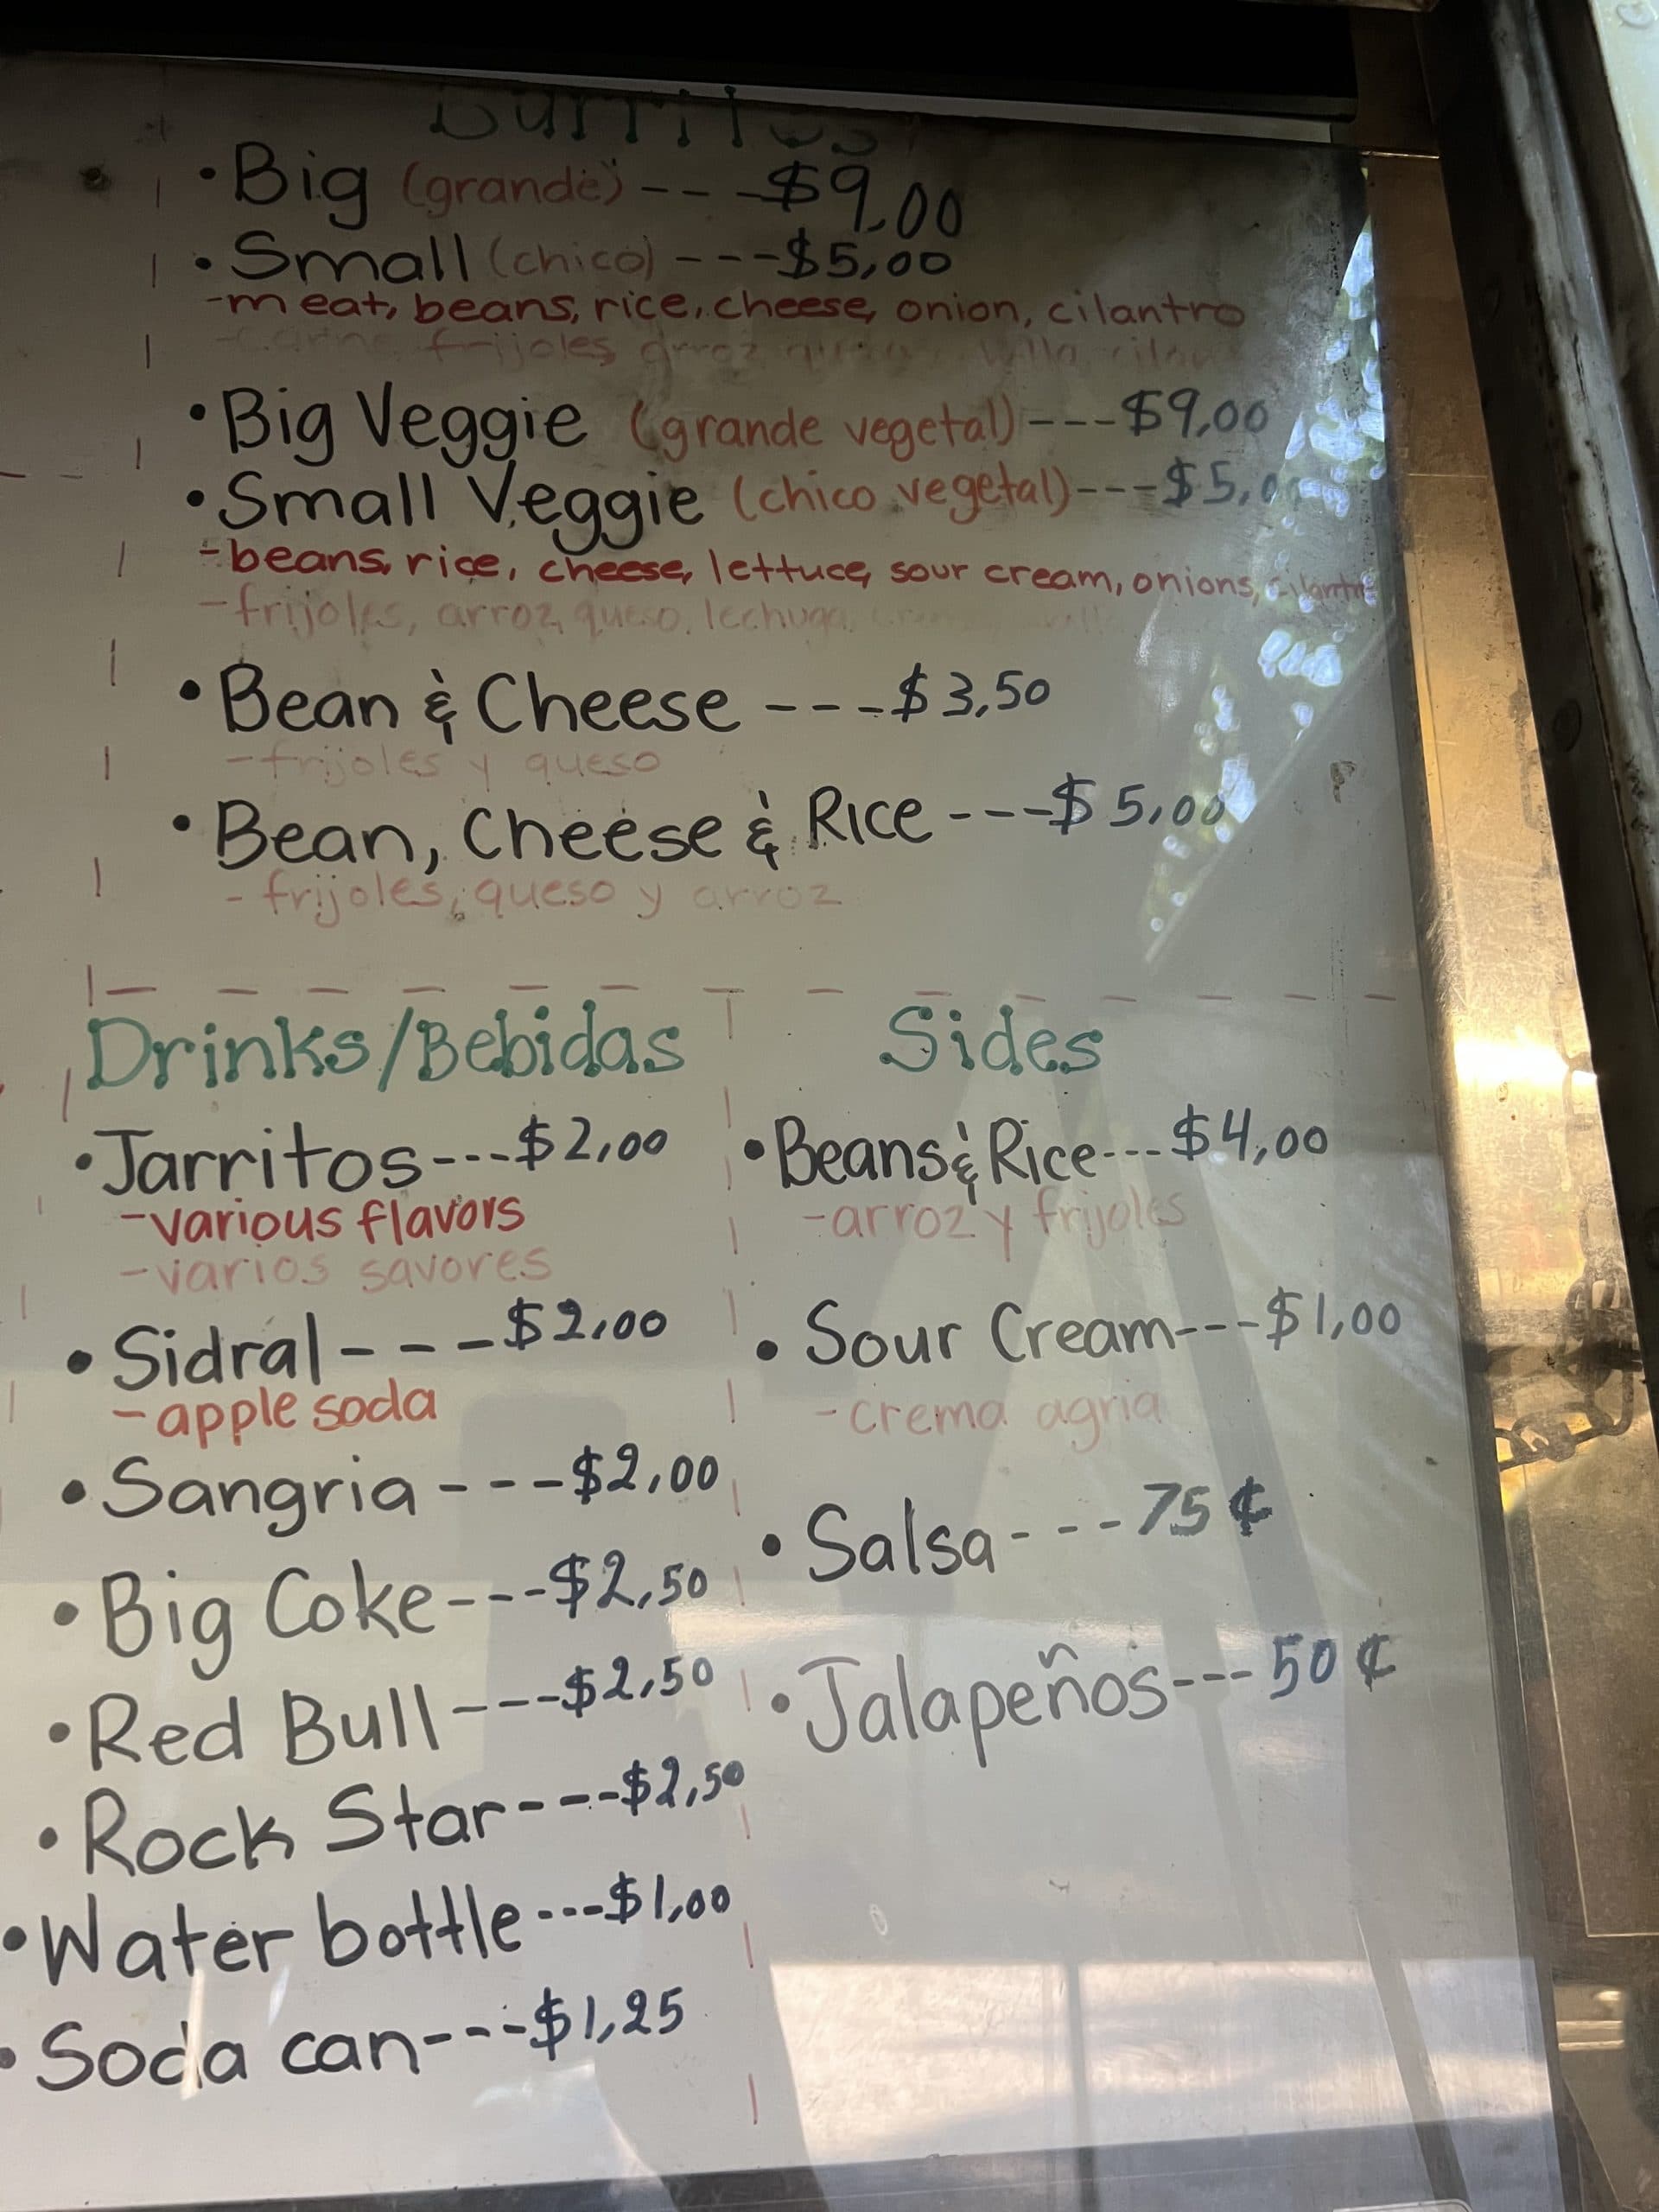 Burritos
• Big (grande) --- $9,00
• Small (chico) --- $5,00
- meat, beans, rice, cheese, onion, cilantro
- Carne, frijoles arroz
• Big Veggie (grande vegetal) --- $9,00
• Small Veggie (chico vegetal) --- $5,0
- beans, rice, cheese, lettuce, sour cream, onions, cilantro
- frijoles, arroz, queso, lechuga,
• Bean & Cheese --- $3,50
- frijoles y queso
• Bean, Cheese & Rice --- $5,00
- frijoles, queso y arroz
Drinks/Bebidas
• Jarritos --- $2,00
- various flavors
- varios savores
• Sidral --- $2,00
- apple soda
• Sangria --- $2,00
• Big Coke --- $2,50
• Red Bull --- $2,50
• Rock Star --- $2,50
• Water bottle --- $1,00
• Soda can --- $1,25
Sides
• Beans & Rice --- $4,00
- arroz y frijoles
• Sour Cream --- $1,00
- crema agria
• Salsa --- 75¢
• Jalapeños --- 50¢